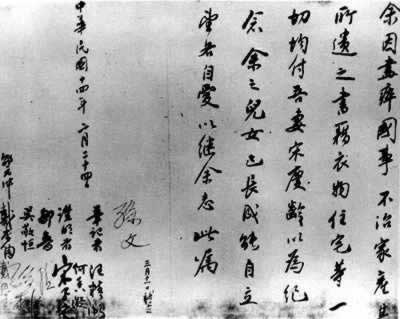 余因盡瘁國事不治家產其
所遺之書籍衣物住宅等一
切均付吾妻宋慶齡以為紀
念余之兒女已長成能自立
望各自愛以繼余志此囑
孫文
三月十一日補簽
中華民國十四年二月二十四
筆記者 汪精衛
證明者 宋子文
何香凝
鄒魯
吳敬恆
戴季陶